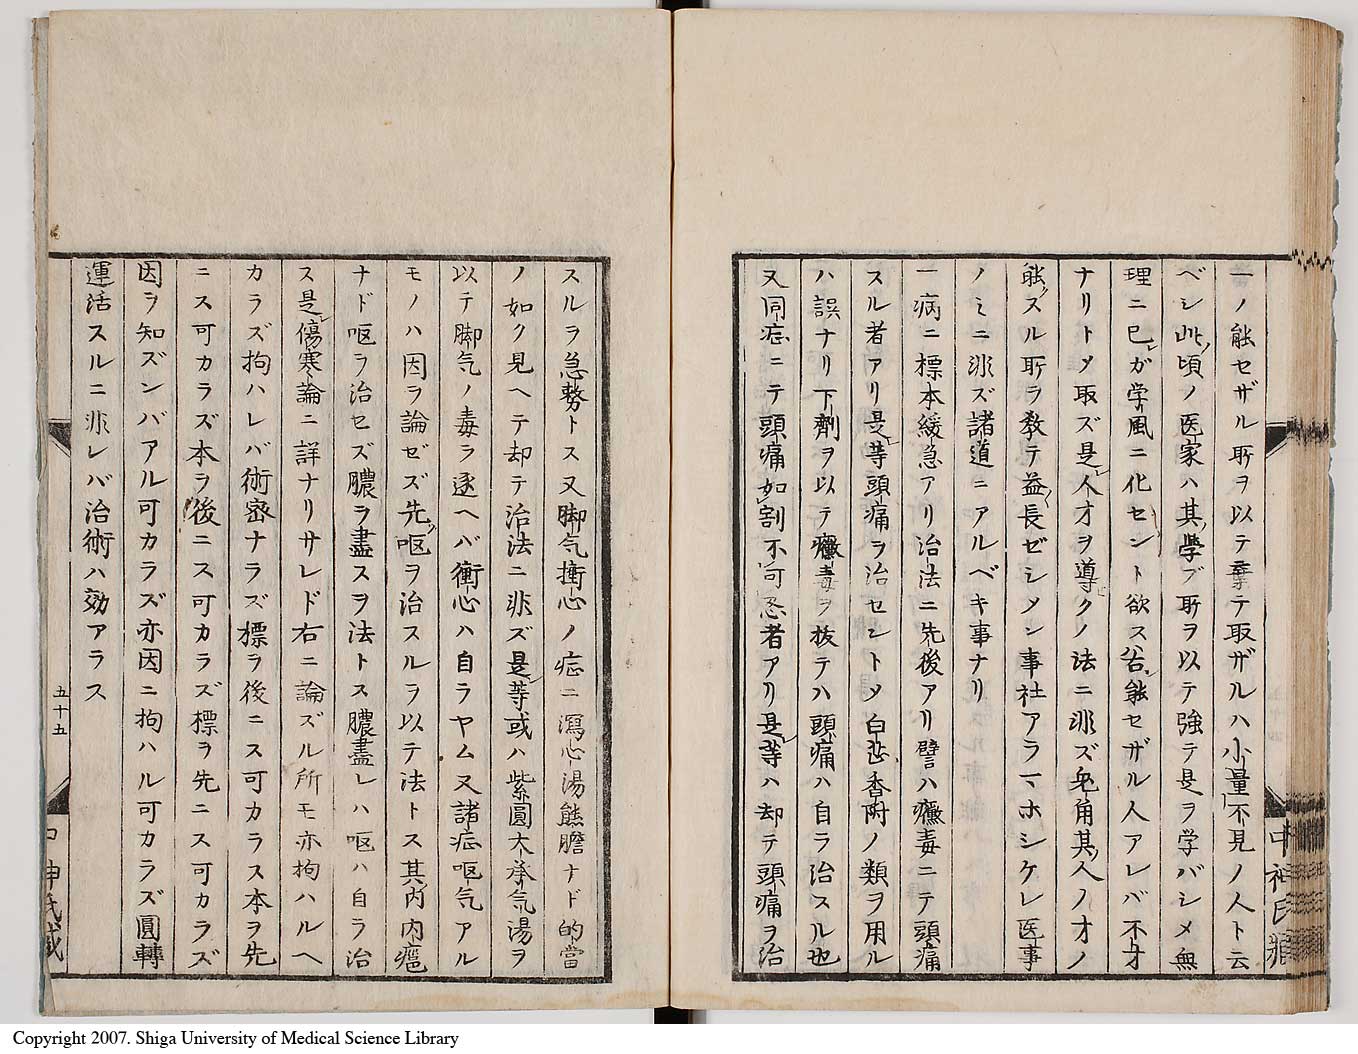 一ノ能セザル所ヲ以テ棄テ取ザルハ小量不見ノ人ト云
ベシ此頃ノ医家ハ其學ブ所ヲ以テ強テ是ヲ学バシメ無
理ニ己ガ学風ニ化セント欲ス若能セザル人アレバ不才
ナリトメ取ズ是人才ヲ導クノ法ニ非ズ兎角其人ノ才ノ
能スル所ヲ教テ益長ゼシメン事社アラマホシケレ医事
ノミニ非ズ諸道ニアルベキ事ナリ
一病ニ標本緩急アリ治法ニ先後アリ譬ハ黴毒ニテ頭痛
スル者アリ是等頭痛ヲ治セントメ白芷香附ノ類ヲ用ル
ハ誤ナリ下劑ヲ以テ黴毒ヲ抜テハ頭痛ハ自ラ治スル也
又同症ニテ頭痛如割不可忍者アリ是等ハ却テ頭痛ヲ治
中神氏藏
スルヲ急務トス又脚気衝心ノ症ニ瀉心湯熊膽ナド的當
ノ如ク見ヘテ却テ治法ニ非ズ是等或ハ紫圓大承気湯ヲ
以テ脚気ノ毒ヲ逐ヘバ衝心ハ自ラヤム又諸症嘔気アル
モノハ因ヲ論ゼズ先嘔ヲ治スルヲ以テ法トス其内内癰
ナド嘔ヲ治セズ膿ヲ盡スヲ法トス膿盡レハ嘔ハ自ラ治
ス是傷寒論ニ詳ナリサレド右ニ論ズル所モ亦拘ハルヘ
カラズ拘ハレバ術密ナラズ標ヲ後ニス可カラス本ヲ先
ニス可カラズ本ヲ後ニス可カラズ標ヲ先ニス可カラズ
因ヲ知ズンバアル可カラズ亦因ニ拘ハル可カラズ圓轉
運活スルニ非レバ治術ハ効アラス
五十五
神氏藏
Copyright 2007. Shiga University of Medical Science Library